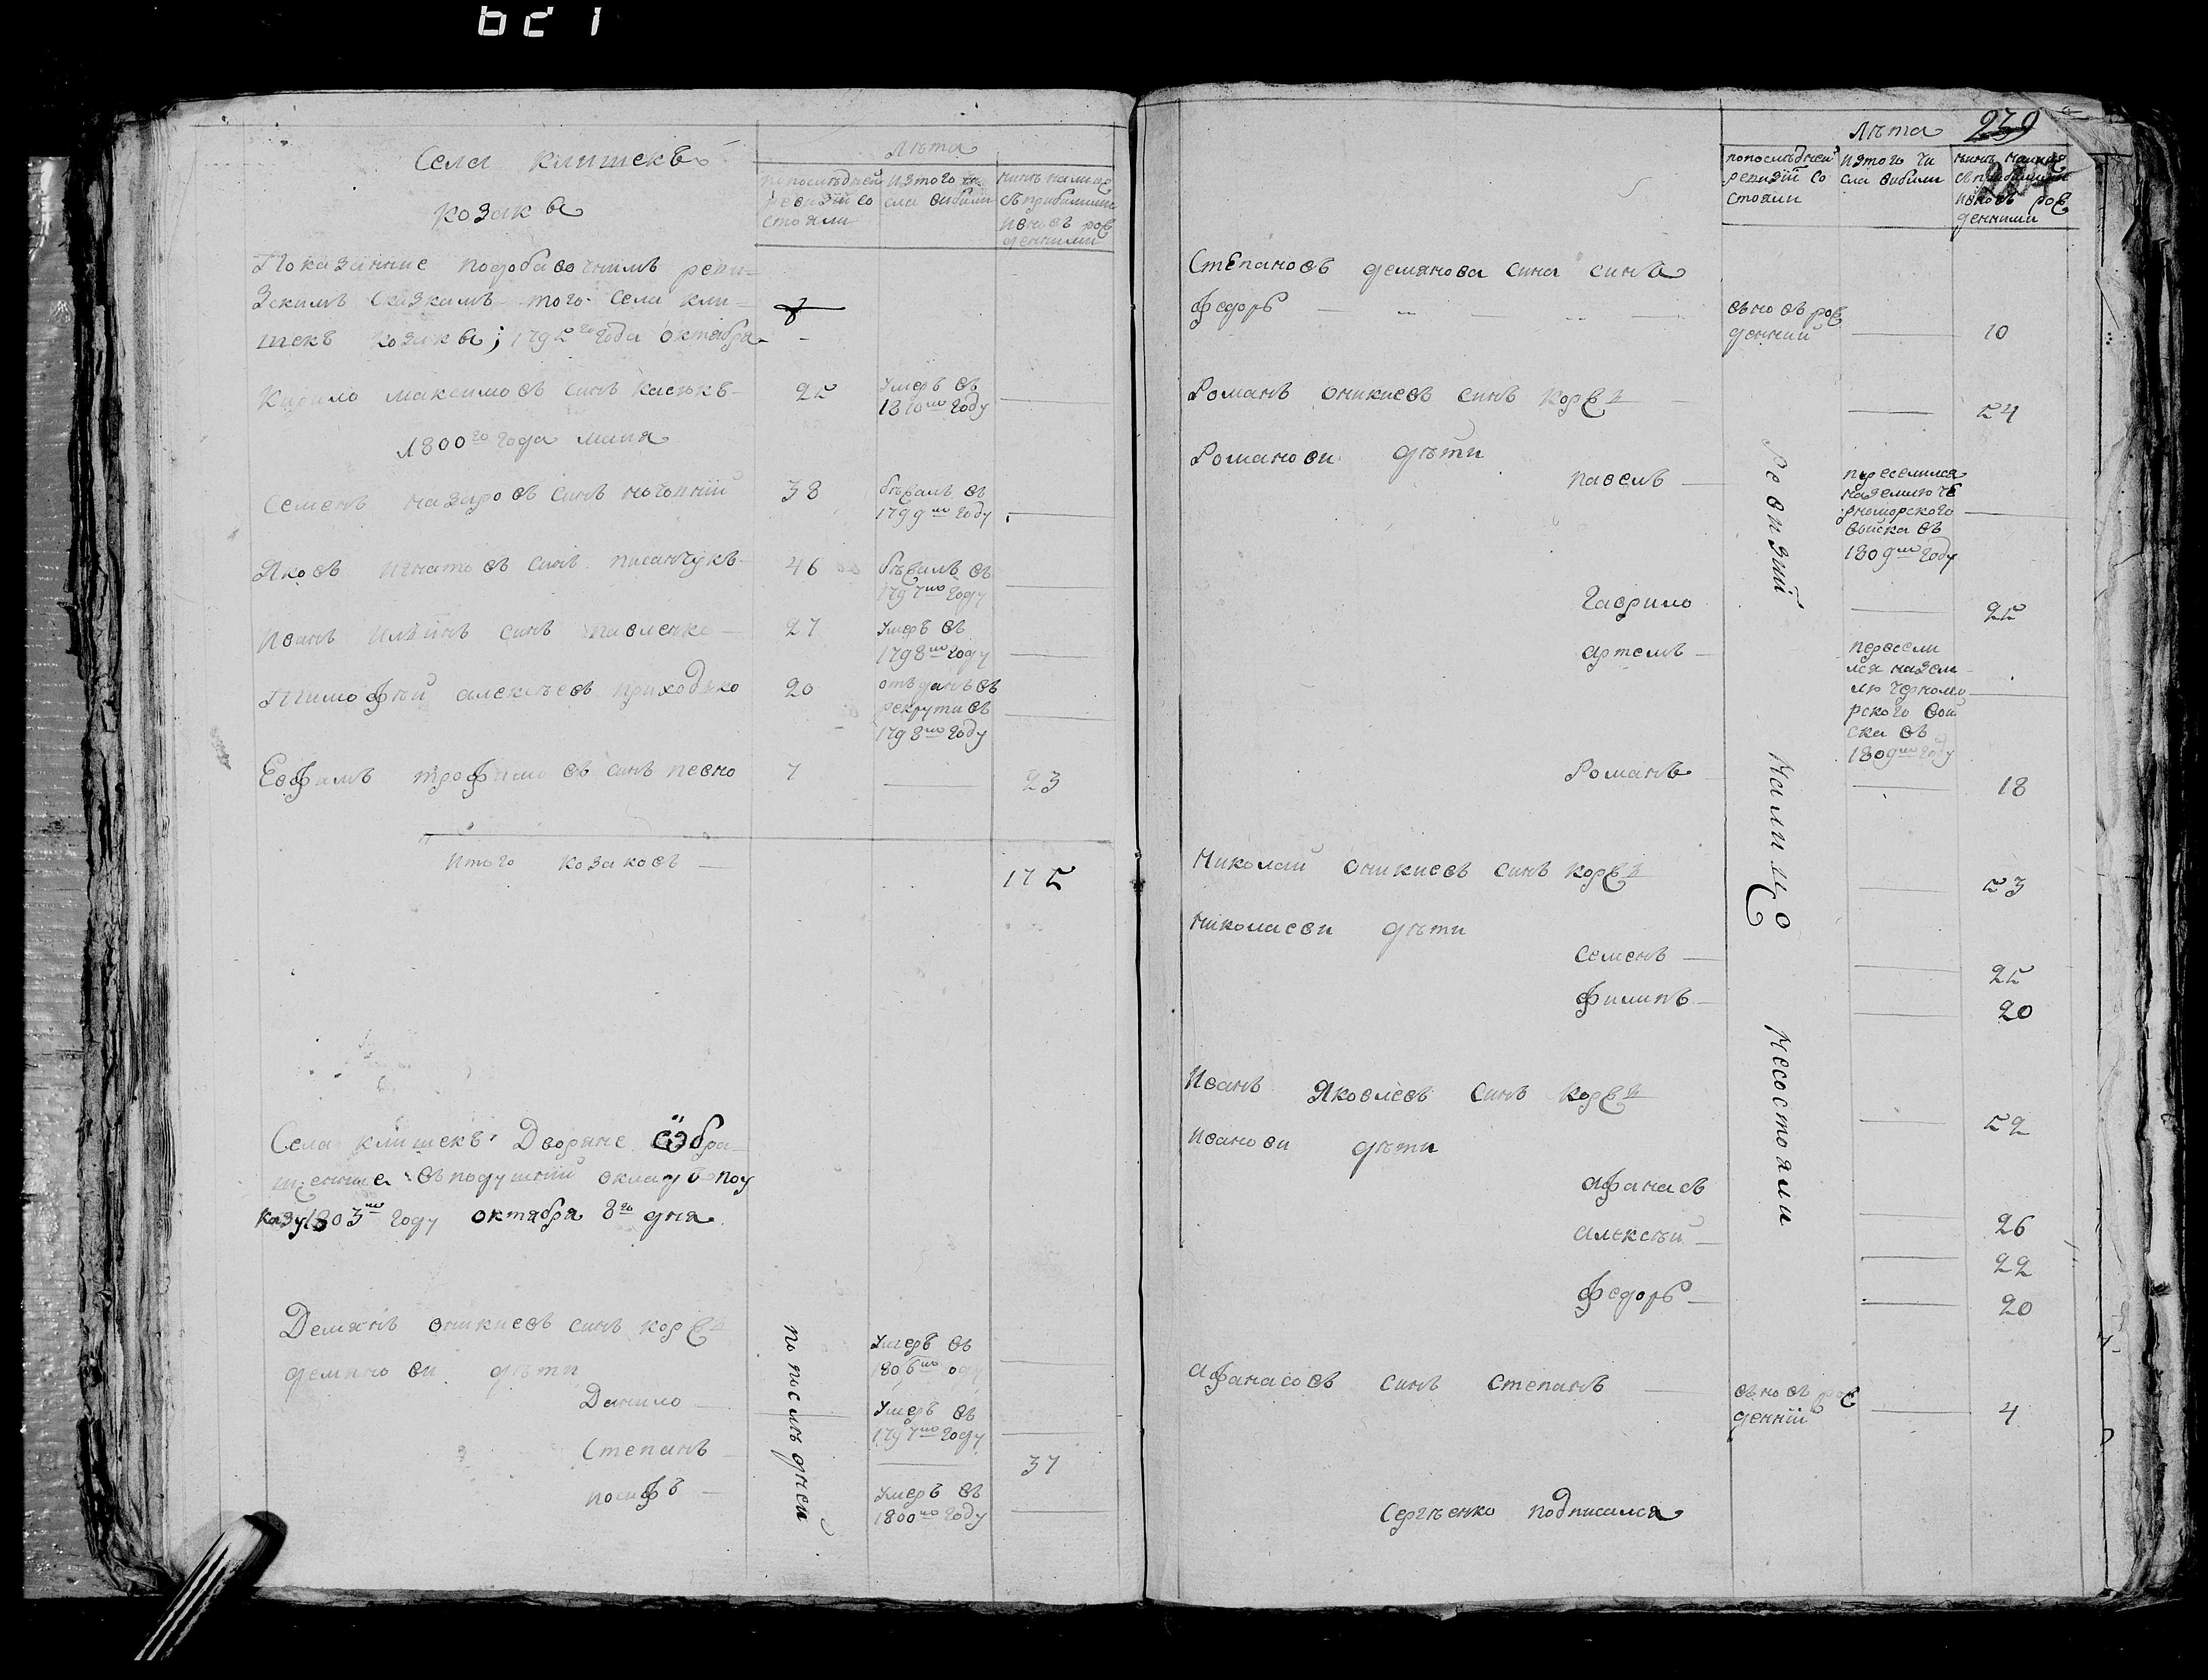 621
Села клишекъ
козаки
Лѣта
попослѣдней ревизіи состояли
изтого числа вибили
нинѣ налицо съприбилими ивновь рожденними
Показанние подобавочнимъ реви-
зскимъ сказкамъ того села кли-
шекъ козаки; 1795го года октября
Кирило максимовъ синъ касякъ 25 умеръ въ 1810мъ году
1800го года маия
Семенъ назаровъ синъ 38 бѣжалъ въ 1799мъ году
Яковъ игнатовъ синъ писанчукъ 46 бѣжалъ въ 1797мъ году
Иванъ илѣинъ синъ павленко 27 умеръ въ 1798мъ году
тимофѣй алексѣевъ приходько 20 отъданъ въ рекрути въ 1798мъ году
Ефимъ трофимовъ синъ певно 7 23
Итого козаковъ 175
Села клишекъ Дворяне обра-
щенние въподушній окладъ поу
казу 1803мъ году октября 8го дня
Демянъ оникиевъ синъ коржъ умеръ въ 1806мъ году
демянови дѣти
Данило умеръ въ 1797мъ году
Степанъ 37
иосифъ умеръ въ 1800мъ году
попослѣдней
239
Лѣта
попослѣдней ревизіи состояли
изтого числа вибили
нинѣ налицо съприбилими ивновь рожденними
Степановъ демянова сина синъ
Федоръ вьновь рожденній 10
Романъ оникиевъ синъ коржъ 54
Романови дѣти
павелъ переселился наземлю черноморского войска въ 1809мъ году
гаврило 25
артемъ переселился наземлю черноморского войска въ 1809мъ году
Романъ 18
Николай оникиевъ синъ коржъ 53
николаеви дѣти
семенъ 25
филипъ 20
Иванъ Яковлевъ синъ коржъ 52
иванови дѣти
афанасъ 26
алексѣй 22
федоръ 20
афанасовъ синъ степанъ вьновь рожденній 4
ревизіи налицо несостояли
Сергѣенко подписался